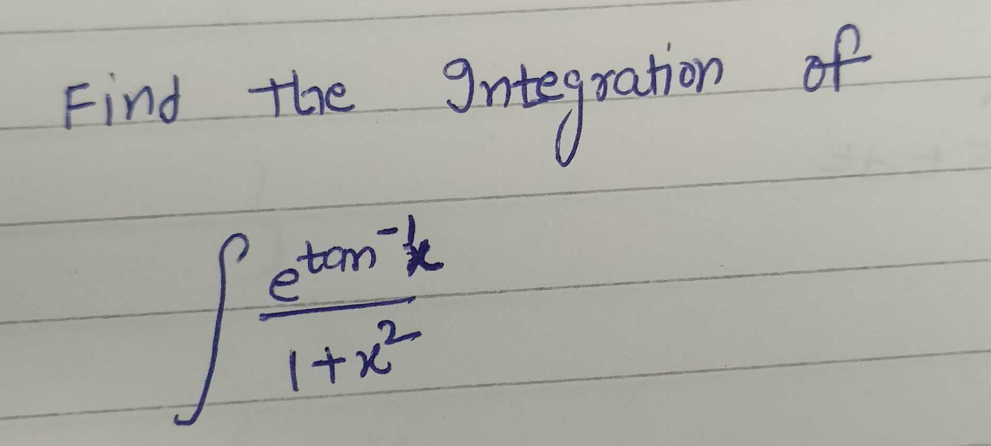 Find the Integration of
∫ e^tan⁻¹x / 1+x²